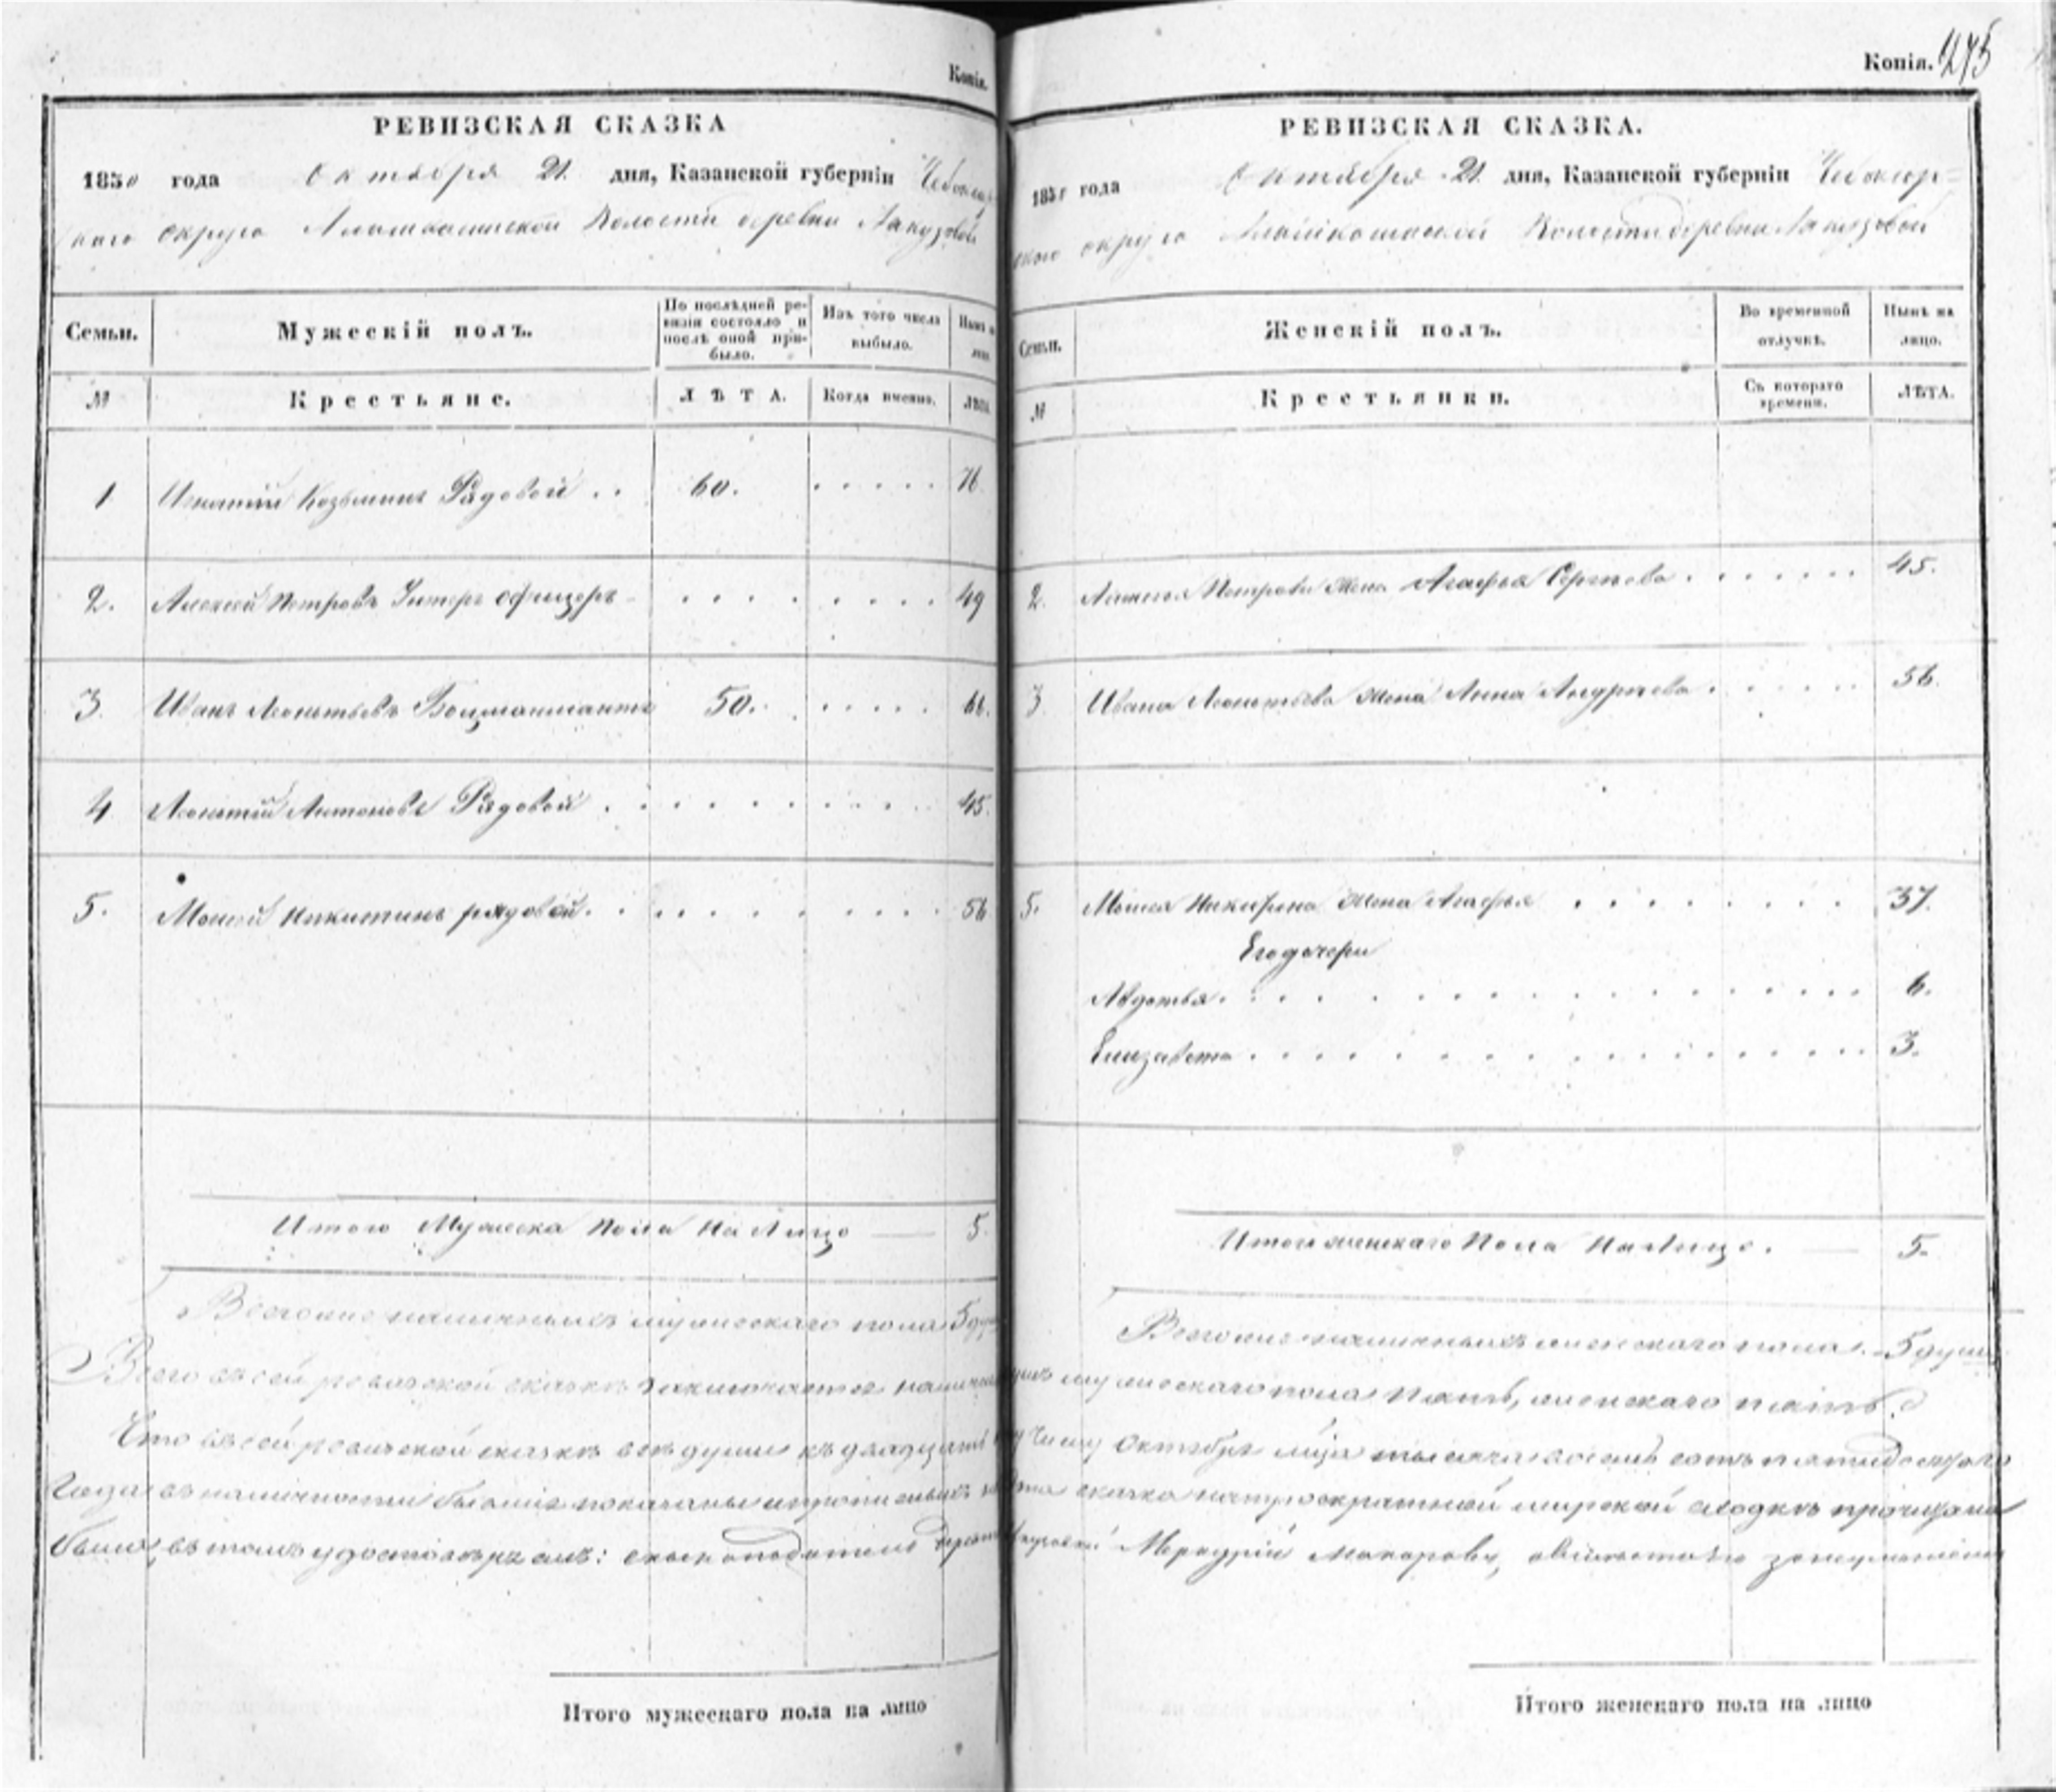 Копія.
РЕВИЗСКАЯ СКАЗКА
1850 года Октября 21. дня, Казанской губерніи Чебоксар
скаго округа Волости деревни
Семьи.
Мужескій полъ.
По послѣдней ревизіи состояло и послѣ оной прибыло.
Изъ того числа выбыло.
Нынѣ на лицо.
№
Крестьяне.
ЛѢТА.
Когда именно.
ЛѢТА.
1 Игнатій Козьминъ Рядовой . . 60. . . . . . 76.
2. Алексей Петровъ Унтеръ офицеръ . . . . . . . . 49
3. Иванъ Леонтьевъ Боцманматъ 50. . . . . . 66.
4 Леонтій Антоновъ Рядовой . . . . . . . . . 45.
5. Моисей Никитинъ рядовой . . . . . . . . . 56
Итого Мужеска Пола На Лицо — 5.
Всего наличныхъ мужескаго пола 5 душ
Всего въ сей ревизской сказкѣ заключается наличныхъ
Что въ сей ревизской сказкѣ все души къ двадцать
года въ наличности бывшіе показаны и прописныхъ
была, въ томъ удостоверяемъ:
Итого мужескаго пола на лицо
Копія. 475
РЕВИЗСКАЯ СКАЗКА.
1850 года Октября 21. дня, Казанской губерніи Чебоксар-
скаго округа Волости деревни
Семьи.
Женскій полъ.
Во временной отлучкѣ.
Нынѣ на лицо.
№
Крестьянки.
Съ котораго времени.
ЛѢТА.
2. Алексея Петрова Жена Агафья Сергѣева . . . . . . 45.
3 Ивана Леонтьева жена Анна Андрѣева . . . . . 56.
5. Моисея Никитина Жена Агафья . . . . . . . . 37.
Его дочери
Авдотья . . . . . . . . . . . . . . . . 6.
Елизавета . . . . . . . . . . . . . . . 3.
Итого женскаго Пола На Лицо. — 5.
Всего наличныхъ женскаго пола. 5 душ
душъ мужескаго пола пять, женскаго пять.
числу Октября мѣсяца тысяча восемь сотъ пятидесятаго
сказка на мирской сходкѣ прочитана
Меркурій Макаровъ,
Итого женскаго пола на лицо